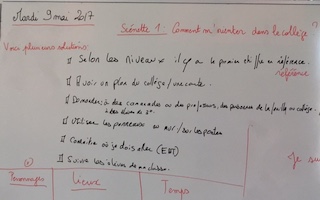 Mardi 9 mai 2017
Scénette 1 : Comment m'orienter dans le collège ?
Voici plusieurs solutions
Selon les niveaux il y a le premier et le
référence
Avoir un plan du collège / une carte.
Demander à des camarades ou des professeurs, des personnes de la famille au collège.
à des élèves de 3e
Utiliser les panneaux au mur / sur les portes
Connaître où je dois aller (EDT)
Suivre les élèves de ma classe.
Je su
Personnages
Lieux
Temps